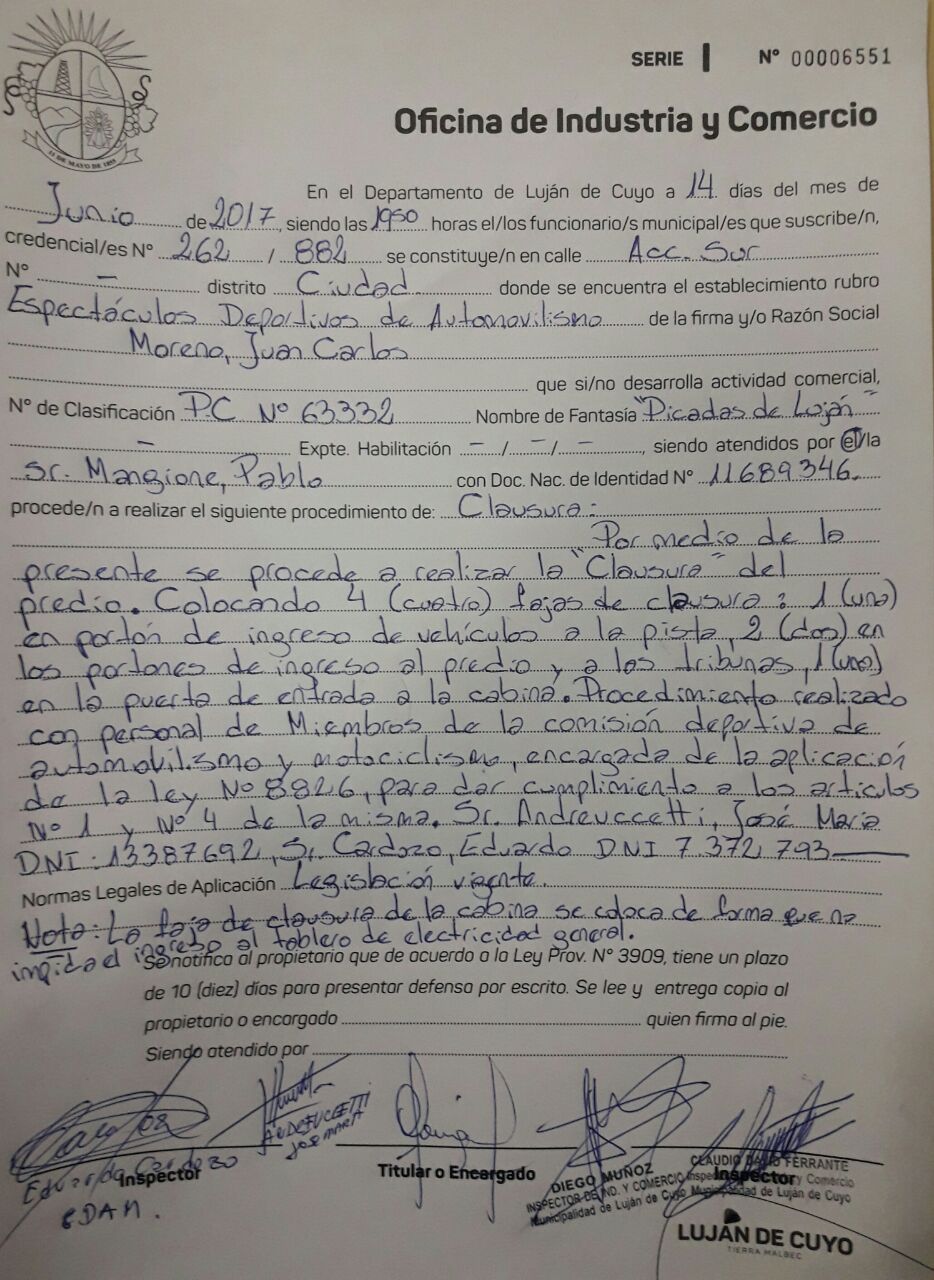 SERIE I Nº 00006551
11 DE MAYO DE 1855
Oficina de Industria y Comercio
En el Departamento de Luján de Cuyo a 14 días del mes de
Junio de 2017, siendo las 1950 horas el/los funcionario/s municipal/es que suscribe/n,
credencial/es Nº 262 / 882 se constituye/n en calle Acc. Sur
Nº - distrito Ciudad donde se encuentra el establecimiento rubro
Espectáculos Deportivos de Automovilismo de la firma y/o Razón Social
Moreno, Juan Carlos
que si/no desarrolla actividad comercial,
Nº de Clasificación P.C Nº 63332 Nombre de Fantasía "Picadas de Luján"
- Expte. Habilitación -/-/-, siendo atendidos por el/la
Sr. Mangione, Pablo con Doc. Nac. de Identidad Nº 11.689.346.
procede/n a realizar el siguiente procedimiento de: Clausura:
Por medio de la
presente se procede a realizar la "Clausura" del
predio. Colocando 4 (cuatro) fajas de clausura: 1 (una)
en portón de ingreso de vehículos a la pista, 2 (dos) en
los portones de ingreso al predio y a las tribunas, 1 (una)
en la puerta de entrada a la cabina. Procedimiento realizado
con personal de Miembros de la comisión deportiva de
automovilismo y motociclismo, encargada de la aplicación
de la ley Nº 8826, para dar cumplimiento a los articulos
Nº 1 y Nº 4 de la misma. Sr. Andreuccetti, José Maria
DNI: 13387692, Sr. Cardozo, Eduardo DNI 7.372.793
Normas Legales de Aplicación Legislación vigente.
Nota: La faja de clausura de la cabina se coloca de forma que no
impida el ingreso al tablero de electricidad general.
Se notifica al propietario que de acuerdo a la Ley Prov. Nº 3909, tiene un plazo
de 10 (diez) días para presentar defensa por escrito. Se lee y entrega copia al
propietario o encargado quien firma al pie.
Siendo atendido por
ANDREUCCETTI
JOSE MARIA
Eduardo Cardozo
CDAM.
Inspector
Titular o Encargado
Inspector
DIEGO MUÑOZ
INSPECTOR DE IND. Y COMERCIO
Municipalidad de Luján de Cuyo
CLAUDIO DAVID FERRANTE
Inspector y Comercio
Municipalidad de Luján de Cuyo
LUJÁN DE CUYO
TIERRA MALBEC